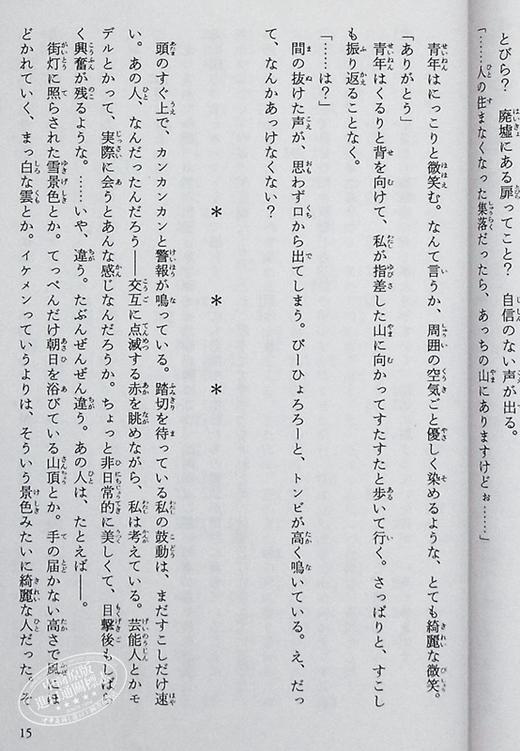 とびら？　廃墟にある扉ってこと？　自信のない声が出る。
「……人の住まなくなった集落だったら、あっちの山にありますけどぉ……」
青年はにっこりと微笑む。なんて言うか、周囲の空気ごと優しく染めるような、とても綺麗な微笑。
「ありがとう」
青年はくるりと背を向けて、私が指差した山に向かってすたすたと歩いて行く。さっぱりと、すこし
も振り返ることなく。
「……は？」
間の抜けた声が、思わず口から出てしまう。ぴーひょろろーと、トンビが高く鳴いている。え、だっ
て、なんかあっけなくない？
＊　＊　＊
頭のすぐ上で、カンカンカンと警報が鳴っている。踏切を待っている私の鼓動は、まだすこしだけ速
い。あの人、なんだったんだろう――交互に点滅する赤を眺めながら、私は考えている。芸能人とかモ
デルとかって、実際に会うとあんな感じなんだろうか。ちょっと非日常的に美しくて、目撃後もしばら
く興奮が残るような。……いや、違う。たぶんぜんぜん違う。あの人は、たとえば――。
街灯に照らされた雪景色とか。てっぺんだけ朝日を浴びている山頂とか。手の届かない高さで風にほ
どかれていく、まっ白な雲とか。イケメンっていうよりは、そういう景色みたいに綺麗な人だった。そ
15